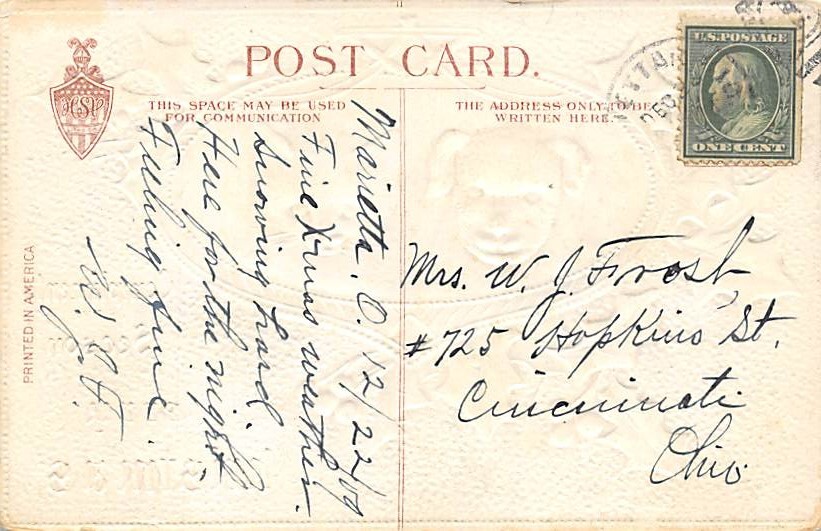 POST CARD.
HSV
THIS SPACE MAY BE USED
FOR COMMUNICATION
THE ADDRESS ONLY TO BE
WRITTEN HERE.
U.S. POSTAGE
ONE CENT
DEC
PRINTED IN AMERICA
Marietta. O. 12/22/09
Fine Xmas weather.
Snowing hard.
Here for the night
Feeling fine.
W.J.F.
Mrs. W. J. Frost,
#725 Hopkins St.
Cincinnati
Ohio